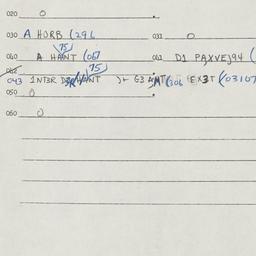 020 0
030 A HORB (296 031 0
75)
040 A HANT (067 041 D1 PAXVEJ94 (
042 75)
043 1NT3R HANT )+ G3 (306 EX3T (03107
050 0
060 0